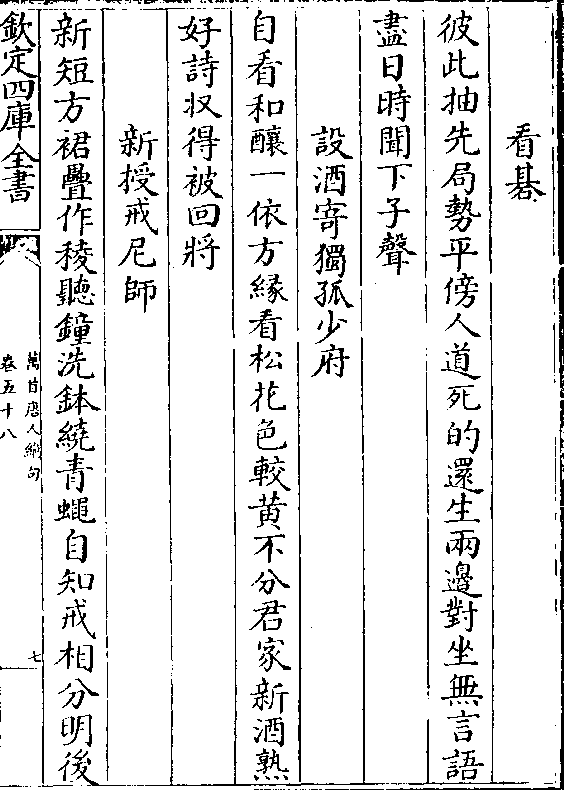 看棊
彼此抽先局勢平傍人道死的還生兩邊對坐無言語
盡日時聞下子聲
設酒寄獨孤少府
自看和釀一依方緣看松花色較黄不分君家新酒熟
好詩収得被回將
新授戒尼師
新短方裙疊作稜聽鐘洗鉢繞青蠅自知戒相分明後
欽定四庫全書
萬首唐人絶句
卷五十八
七